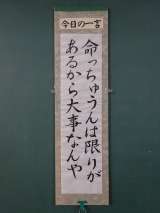 今日の一言
命っちゅうんは限りが
あるから大事なんや